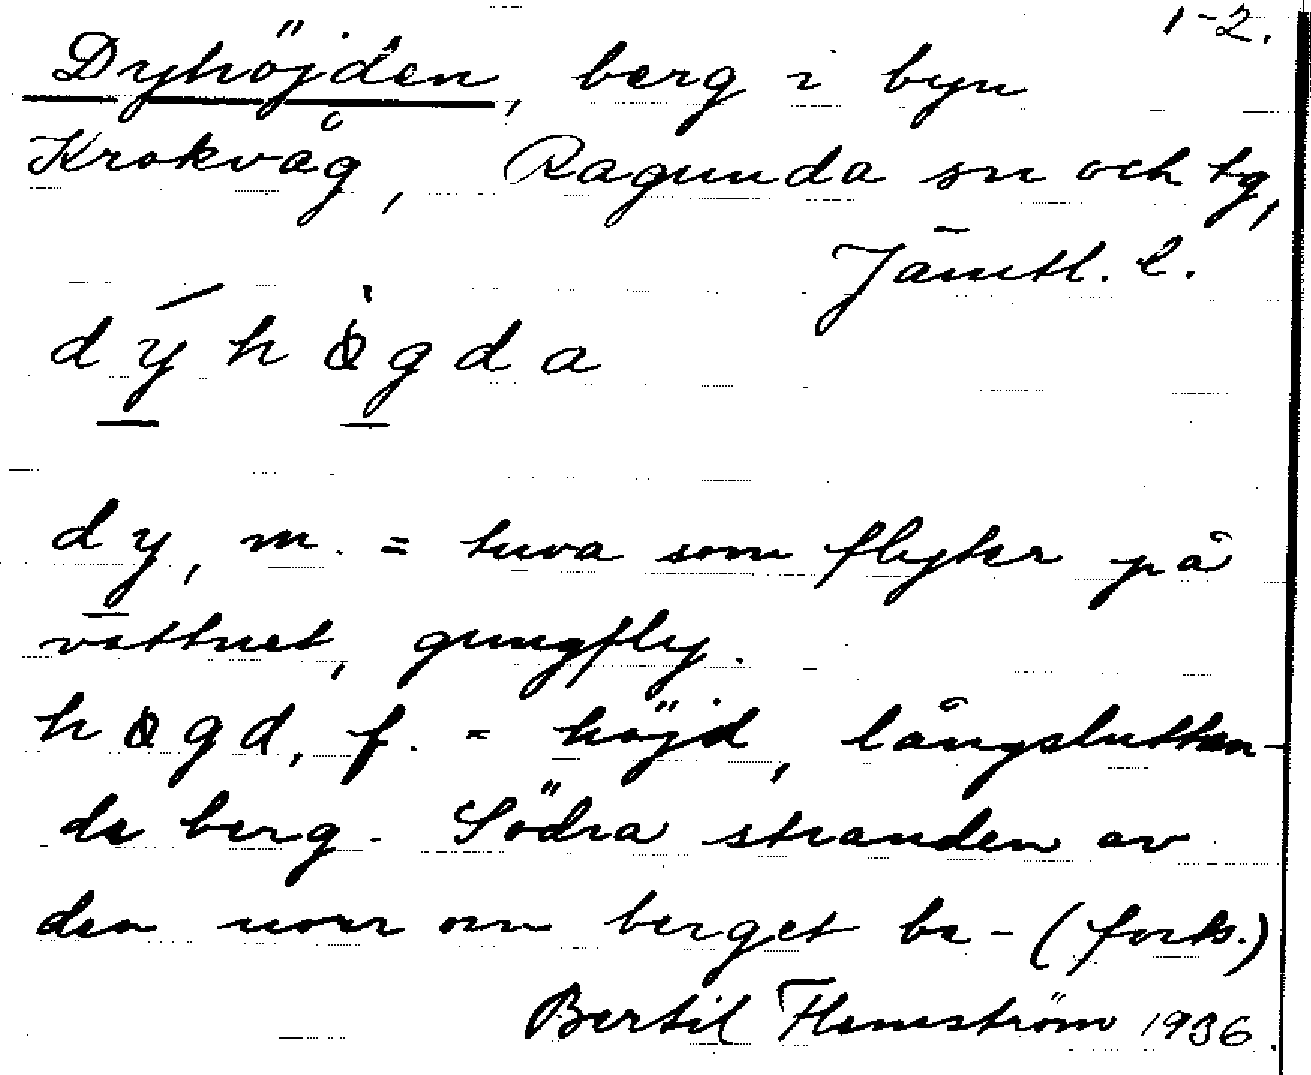 1-2.
Dyhöjden, berg i byn
Krokvåg, Ragunda sn och tg,
Jämtl. l.
dýhògda
dy, m. = tuva som flyter på
vattnet, gungfly.
hògd, f. = höjd, långslutten-
de berg. Södra stranden av
den norr om berget be- (forts.)
Bertil Flemström 1936.